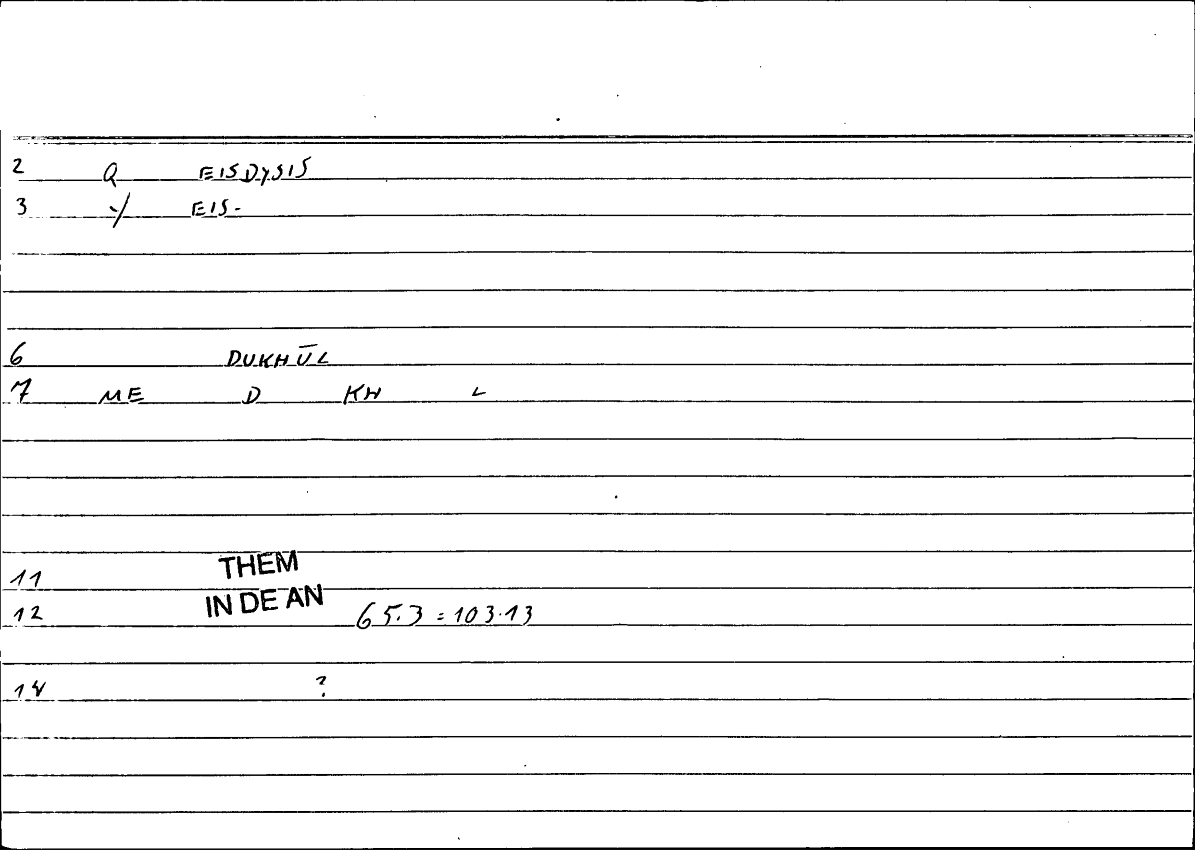 2 Q EISDYSIS
3 -/ EIS-
6 DUKHŪL
7 ME D KH L
11 THEM
12 IN DE AN 65.3 = 103.13
14 ?